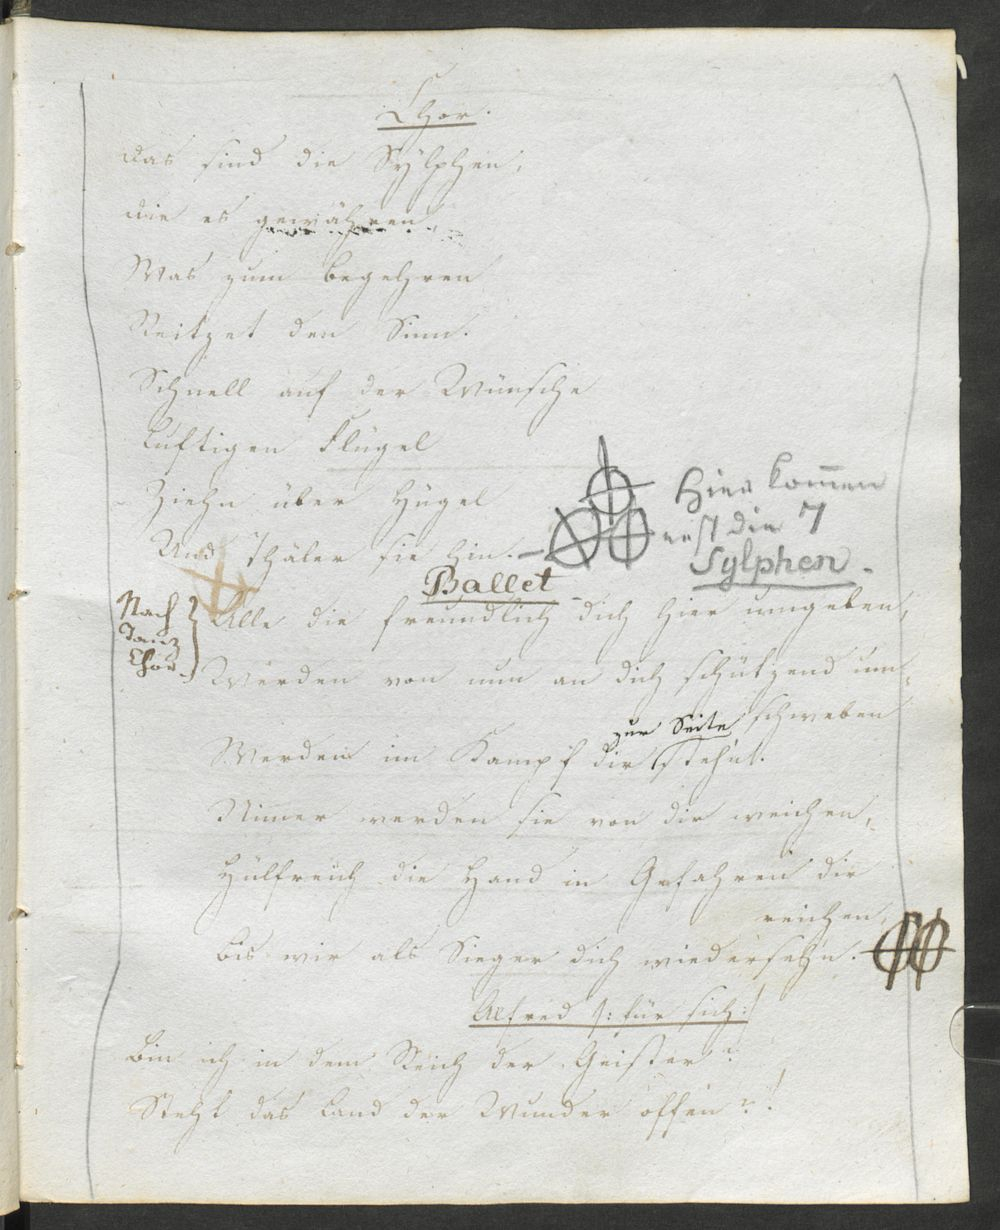 Chor.
Das sind die Sylphen,
die es gewähren
Was zum Begehren
Reitzet den Sinn.
Schnell auf der Wünsche
Luftigen Flügel
Ziehn über Hügel
Und Thäler sie hin.
Hier kom̅en
erst die 7
Sylphen.
Ballet
Nach
Tanz
Chor.
Alle die freundlich dich hier umgeben,
Werden von nun an dich schützend um=
schweben
Werden im Kampf dir zur Seite stehn.
Nimer werden sie von dir weichen,
Hülfreich die Hand in Gefahren dir
reichen,
Bis wir als Sieger dich wiedersehn.
Alfred /: für sich :/
Bin ich in dem Reich der Geister?
Steht das Land der Wunder offen?!